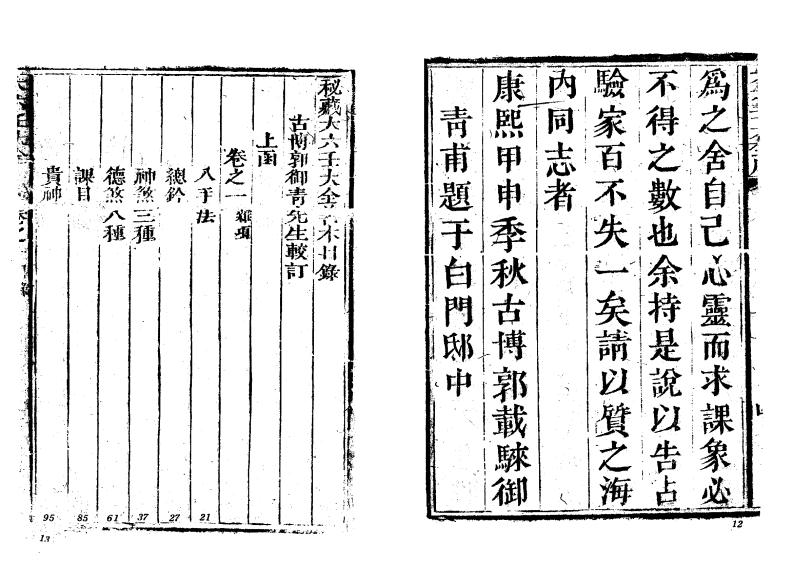 為之舍自己心靈而求課象必
不得之數也余持是說以告占
驗家百不失一矣請以質之海
內同志者
康熙甲申季秋古博郭載騋御
青甫題于白門邸中
12
秘藏大六壬大全善本目錄
古博郭御青先生較訂
上函
卷之一 類項
入手法 21
總鈐 27
神煞三種 37
德煞八種 61
課目 85
貴神 95
13